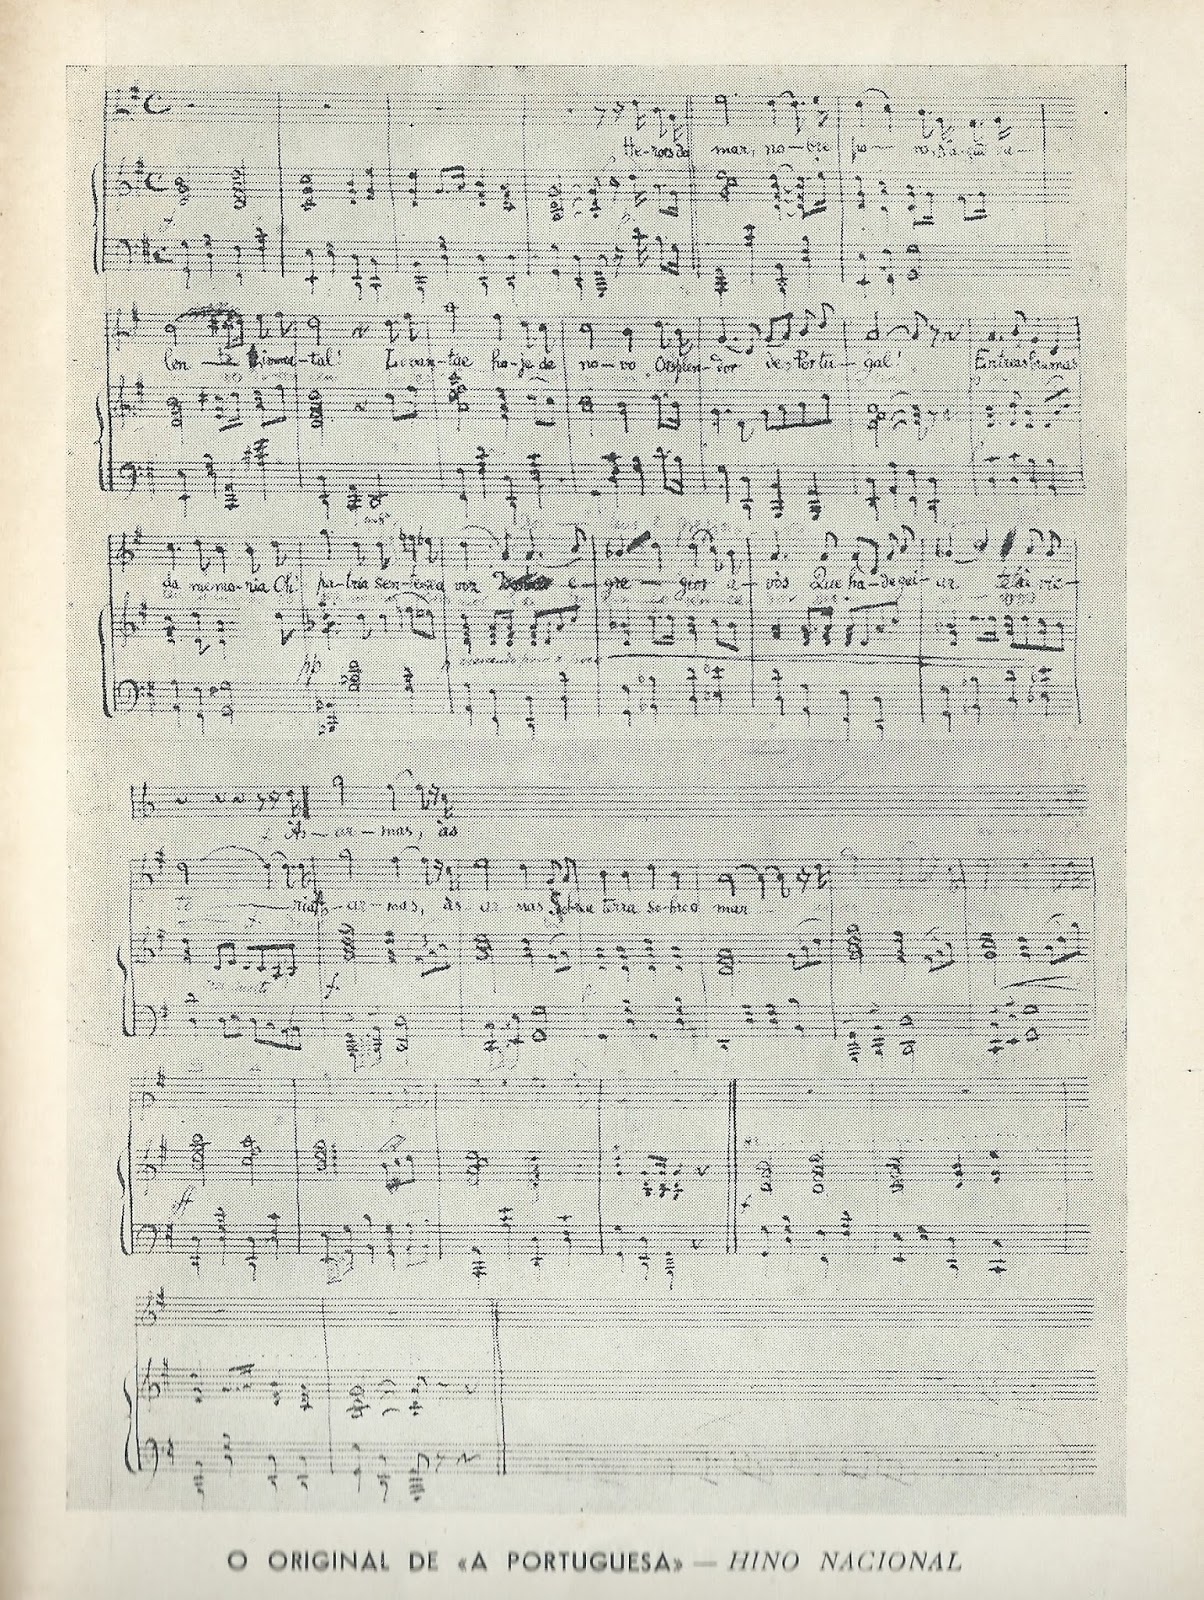 He-roes do mar, no-bre po- vo, Nação va-
len- te Immor-tal! Levan-tae ho-je de no-vo O esplen-dor de Portu-gal! Entre as brumas
da memo-ria Oh! pa-tria sen-te-se a voz e-gre-gios a-vós Que ha-de gui-ar te á vic-
Ás-ar-mas, ás
to- ria Ás-ar-mas, ás ar mas Sobre a terra so-bre o mar
pp
f
ff
O ORIGINAL DE «A PORTUGUESA» — HINO NACIONAL